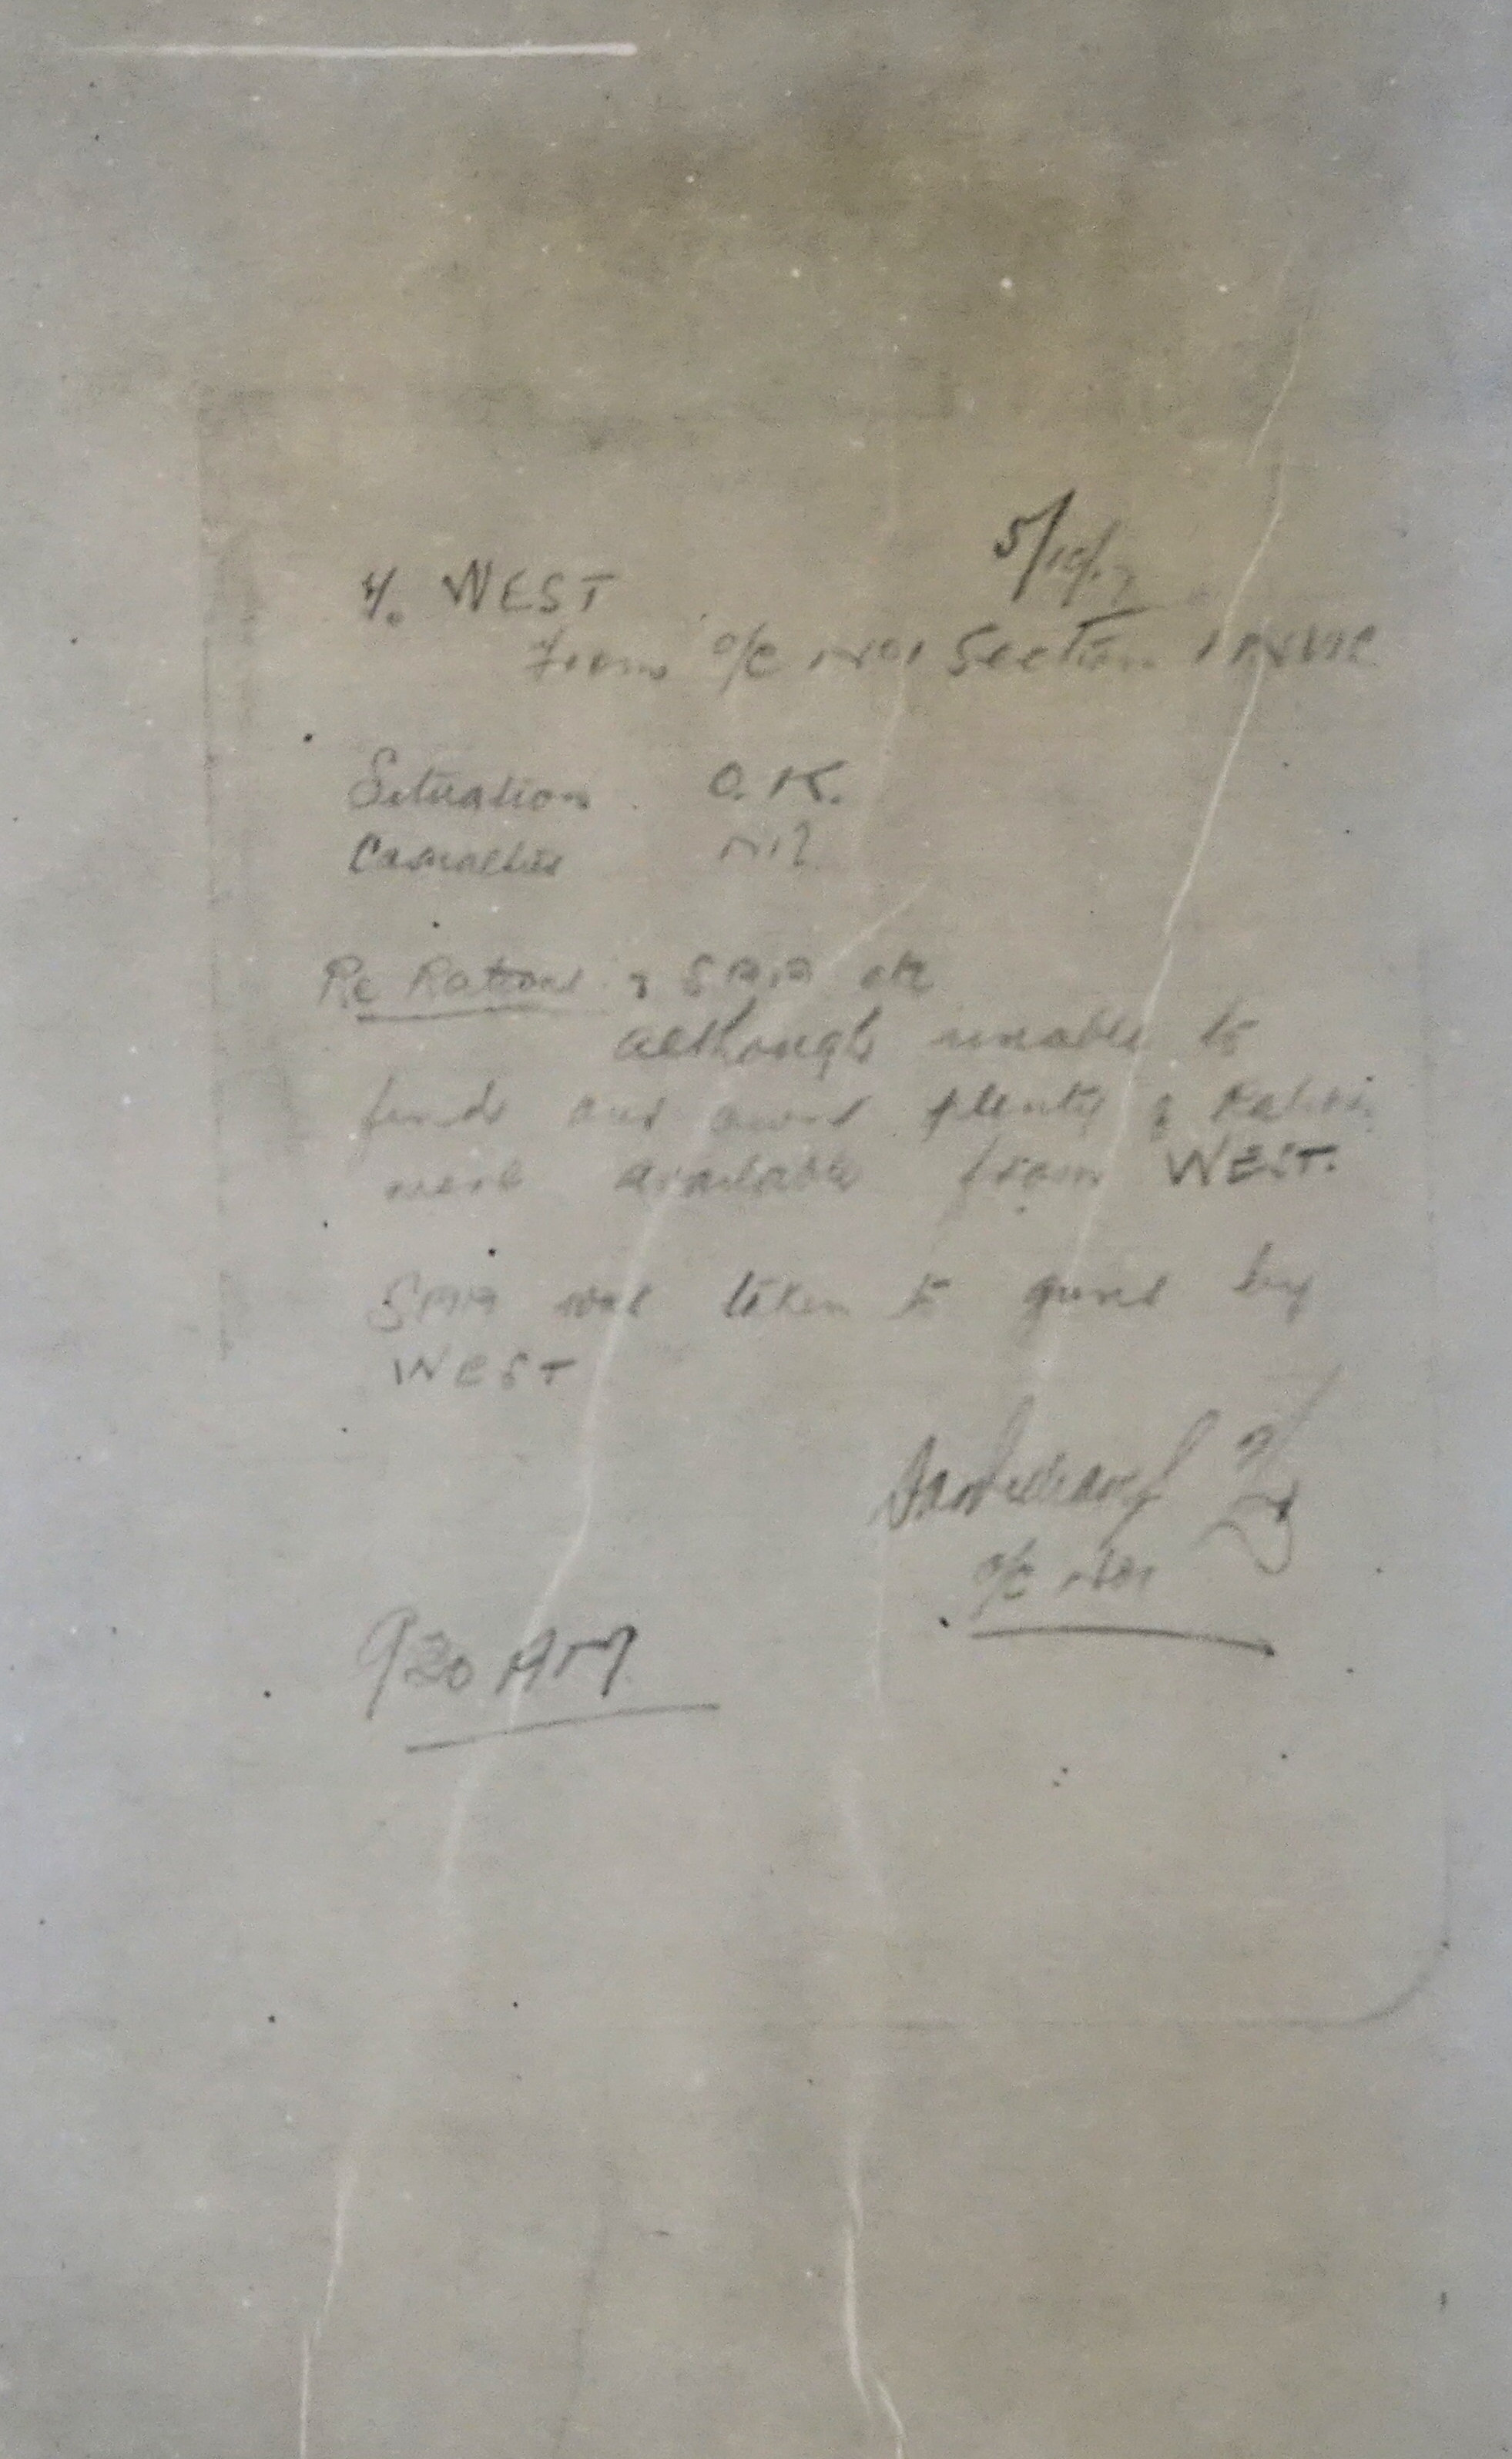 5/10/17
To. WEST
From O/C No1 Section 1
Situation O.K.
Casualties Nil
Re Rations & SAA etc
although unable to
find our own plenty of Rations
were available from WEST.
SAA was taken to guns by
WEST
O/C No1
920 AM